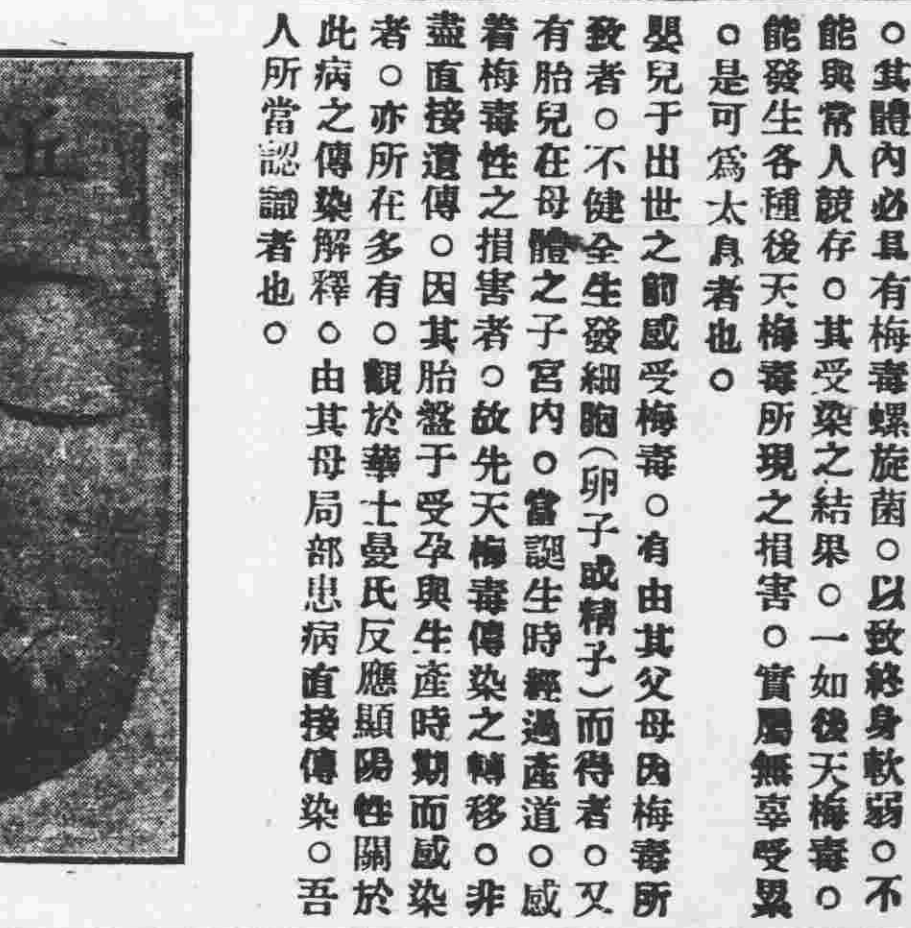 。其體內必具有梅毒螺旋菌。以致終身軟弱。不
能與常人競存。其受染之結果。一如後天梅毒。
能發生各種後天梅毒所現之損害。實屬無辜受累
。是可爲太息者也。
嬰兒于出世之前感受梅毒。有由其父母因梅毒所
致者。不健全生發細胞(卵子或精子)而得者。又
有胎兒在母體之子宮內。當誕生時經過產道。感
着梅毒性之損害者。故先天梅毒傳染之轉移。非
盡直接遺傳。因其胎盤于受孕與生產時期而感染
者。亦所在多有。觀於華士曼氏反應顯陽性關於
此病之傳染解釋。由其母局部患病直接傳染。吾
人所當認識者也。